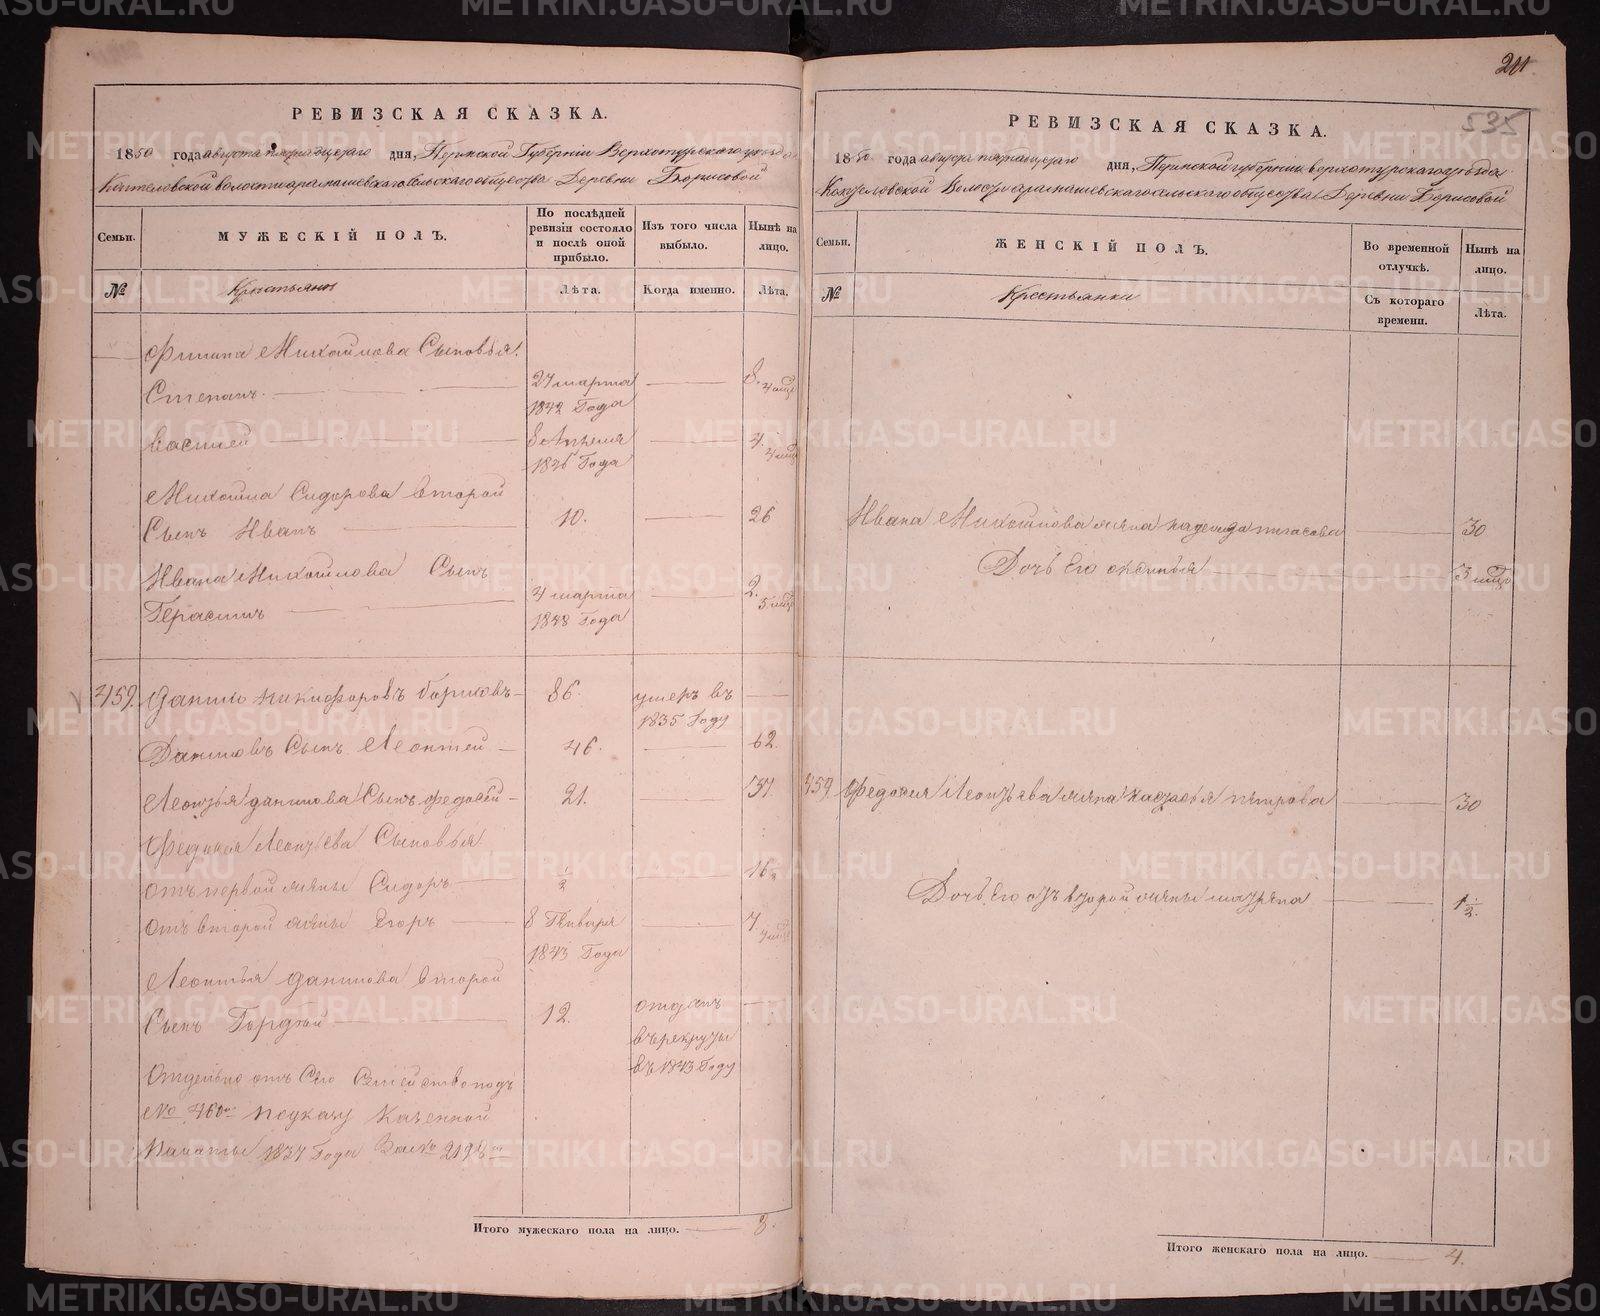 РЕВИЗСКАЯ СКАЗКА.
1850 года августа пятнадцатаго дня, Пермской Губерніи Верхотурскаго уезда
волости арамашевскаго сельскаго общества Деревни Борисовой
Семьи.
МУЖЕСКІЙ ПОЛЪ.
По послѣдней ревизіи состояло и послѣ оной прибыло.
Изъ того числа выбыло.
Нынѣ на лицо.
№
Крестьяне
Лѣта.
Когда именно.
Лѣта.
Филипа Михайлова Сыновья.
Степанъ 27 марта 1842 Года 8. 4 мцс
Василей 8 Апреля 1846 Года 4. 4 мцс
Михайла Сидорова второй
Сынъ Иванъ 10. 26
Ивана Михайлова Сынъ
Герасимъ 4 марта 1848 Года 2. 5 мцс
459. Данило Никифоровъ 86. умеръ въ 1835 Году
Даниловъ Сынъ Леонтей 46. 62.
Леонтья данилова Сынъ федосей 21. 37.
Федосея Леонтьева Сыновья
отъ первой жены Сидоръ ½ 16½
отъ второй жены Егоръ 8 Генваря 1843 Года 7 7 мцс
Леонтья данилова второй
Сынъ Гордей 12. отданъ въ рекруты въ 1843 Году
Отдельно отъ Сего Семейства подъ
№ 460мъ по указу Казенной
Палаты 1837 Года За № 2198м
Итого мужескаго пола на лицо. 8.
211
535
РЕВИЗСКАЯ СКАЗКА.
1850 года августа пятнадцатаго дня, Пермской губерніи верхотурскаго уезда
Волости арамашевскаго сельскаго общества Деревни Борисовой
Семьи.
ЖЕНСКІЙ ПОЛЪ.
Во временной отлучкѣ.
Нынѣ на лицо.
№
Крестьянки
Съ котораго времени.
Лѣта.
Ивана Михайлова жена надежда 30
Дочь Его оксинья 5 мцс
459. Федосея Леонтьева жена настасья петрова 30
Дочь Его отъ второй жены матрена 1½.
Итого женскаго пола на лицо. 4.
METRIKI.GASO-URAL.RU